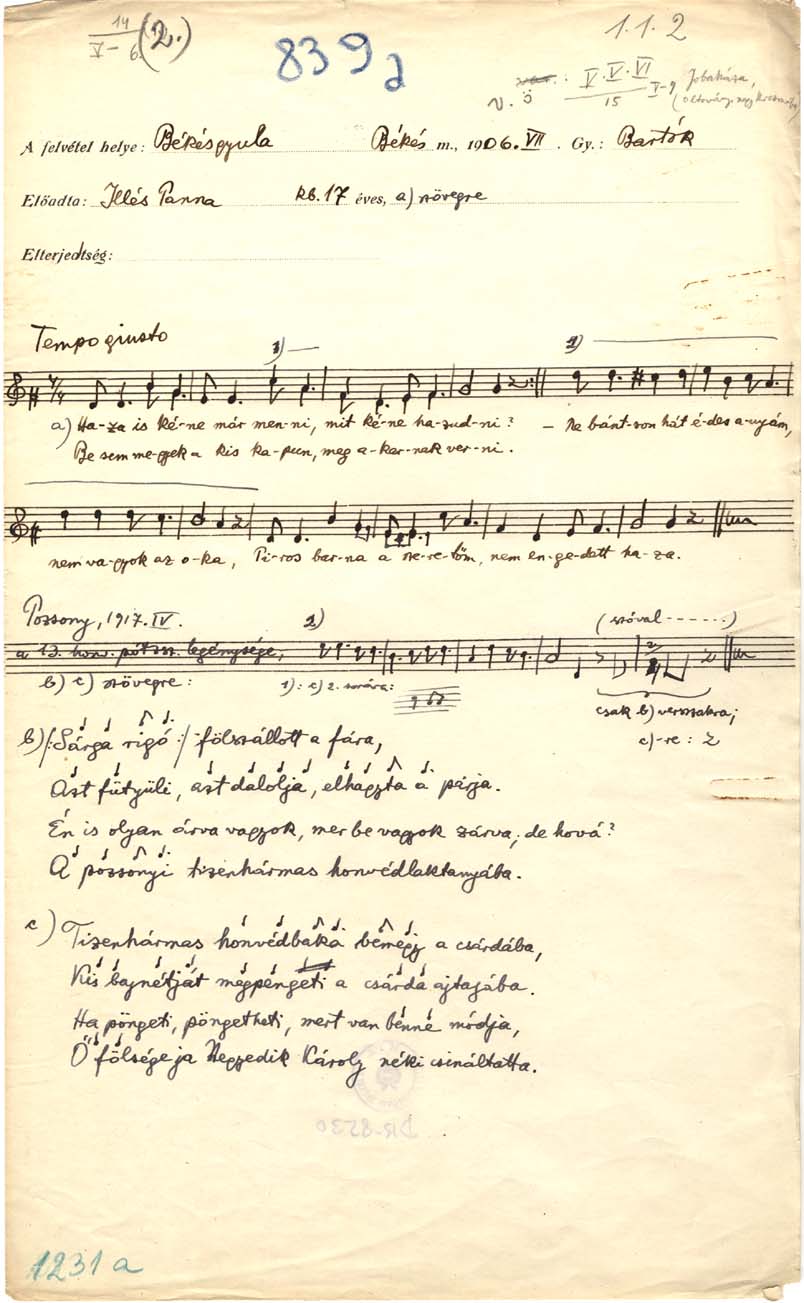 14
V- 6 (2.)
1.1.2
839
V. Ö
V. V. VI
15 V-9
A felvétel helye: Békésgyula Békés m., 1906. VII. Gy.: Bartók
Előadta: Illés Panna kb. 17 éves, a) szövegre
Elterjedtség:
Tempo giusto
1) 2)
a) Ha-za is ké-ne már men-ni, mit ké-ne ha-zud-ni? — Ne bánt-son hát é-des a-nyám,
Be sem me-gyek a kis ka-pun, meg a-kar-nak ver-ni.
nem va-gyok az o-ka, Pi-ros bar-na a sze-re-tőm, nem en-ge-dett ha-za.
Pozsony, 1917. IV. 2) (szóval - - - - - -)
a 13. honv. pótzsz. legénysége,
b) c) szövegre: 1): c) 2. sorára:
csak b) versszakra;
c)-re:
b) /: Sárga rigó :/ fölszállott a fára,
Azt fütyüli, azt dalolja, elhagyta a párja.
Én is olyan árva vagyok, mer be vagyok zárva, de hová?
A pozsonyi tizenhármas honvédlaktanyába.
c) Tizenhármas honvédbaka bemegy a csárdába,
Kis bajnétját megpengeti a csárda ajtajába.
Ha pöngeti, pöngetheti, mert van benne módja,
Ő fölsége ja Negyedik Károly néki csináltatta.
1231 a